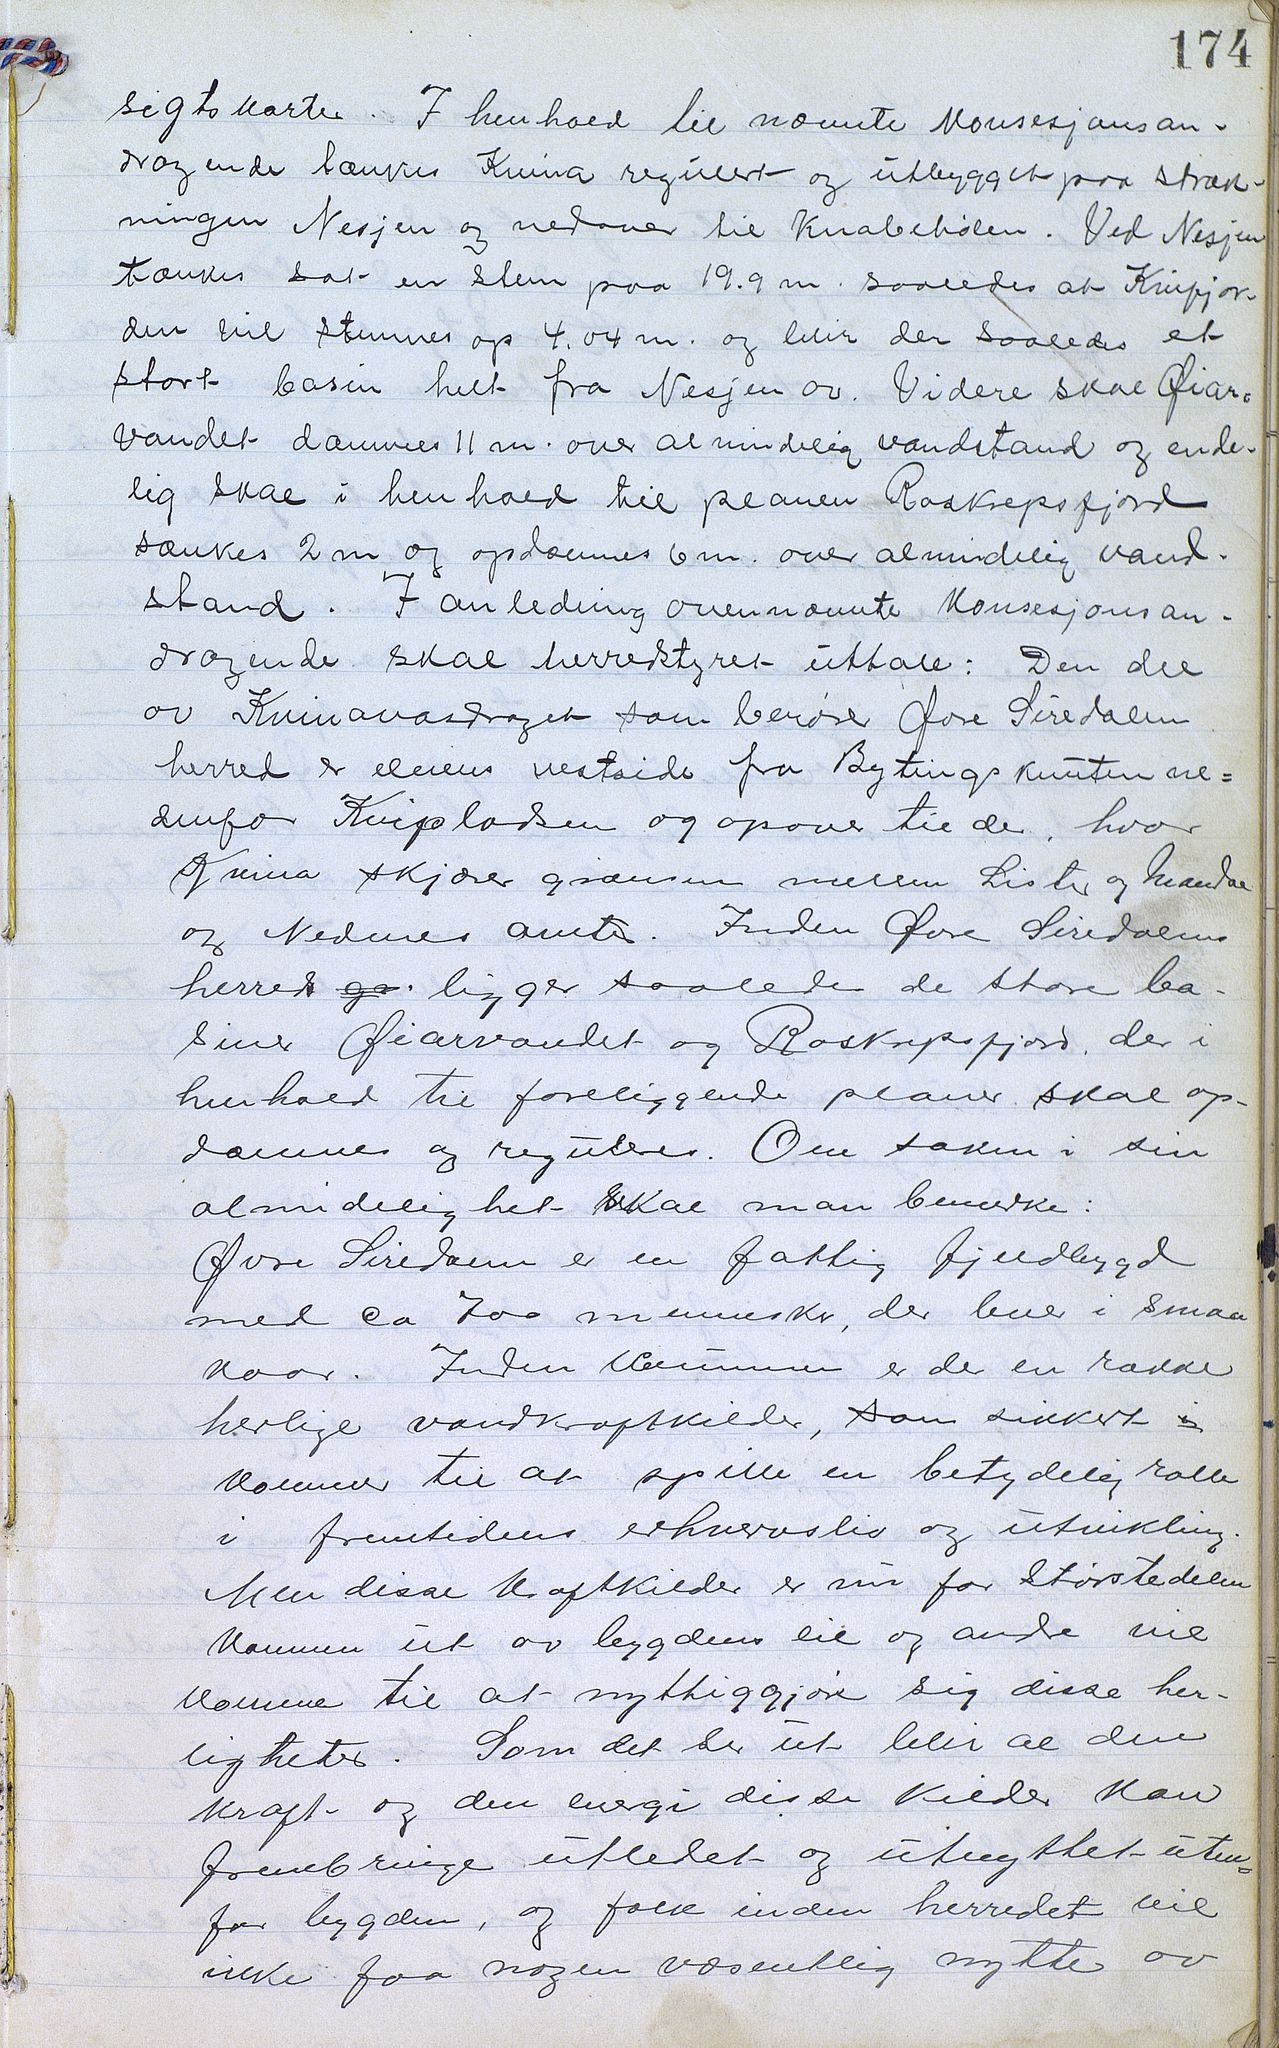 174
sigtskarter. I henhold til nævnte konsesjonsan-
dragende tænkes Kvina regulert og utbygget paa stræk-
ningen Nesjen og nedover til Knabehølen. Ved Nesjen
tænkes sat en stem paa 19.9 m. saaledes at Kvifjor-
den vil stemmes op 4.04 m. og blir der saaledes et
stort basin helt fra Nesjen av. Videre skal Øiar-
vandet dæmmes 11 m. over almindelig vandstand og ende-
lig skal i henhold til planen Roskrepsfjord
sænkes 2 m og opdæmmes 6 m. over almindelig vand-
stand. I anledning ovennævnte konsesjonsan-
dragende skal herredstyret uttale: Den del
av Kvinavasdraget som berører Øvre Siredalen
herred er elvens vestside fra Bytingsknuten ne=
denfor Kvipladsen og opover til der, hvor
Kvina skjærer grænsen mellem Lister og Mandal
og Nedenes amter. Inden Øvre Siredalens
herred ga. ligger saaledes de store ba-
siner Øiarvandet og Roskrepsfjord, der i
henhold til foreliggende planer skal op-
dæmmes og reguleres. Om saken i sin
almindelighet skal man bemerke:
Øvre Siredalen er en fattig fjeldbygd
med ca 700 mennesker, der lever i smaa
kaar. Inden kommunen er der en række
herlige vandkraftkilder, som sikkert i
kommer til at spille en betydelig rolle
i fremtidens erhvervsliv og utvikling.
Men disse kraftkilder er nu for størstedelen
kommen ut av bygdens eie og andre vil
komme til at nyttiggjøre sig disse her-
ligheter. Som det ser ut blir al den
kraft og den energi disse kilder kan
frembringe utledet og utnyttet uten=
for bygden, og folk inden herredet vil
ikke faa nogen væsentlig nytte av